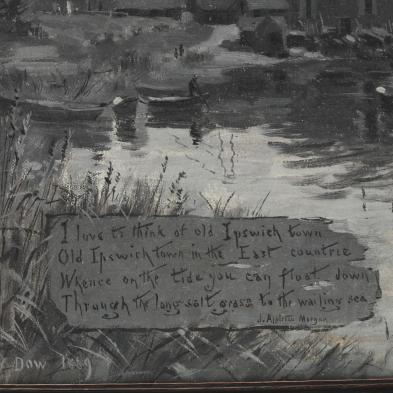 I love to think of old Ipswich town
Old Ipswich town in the East countrie
Whence on the tide you can float down
Through the long salt grass to the wailing sea
J. Appleton Morgan
Dow 1889